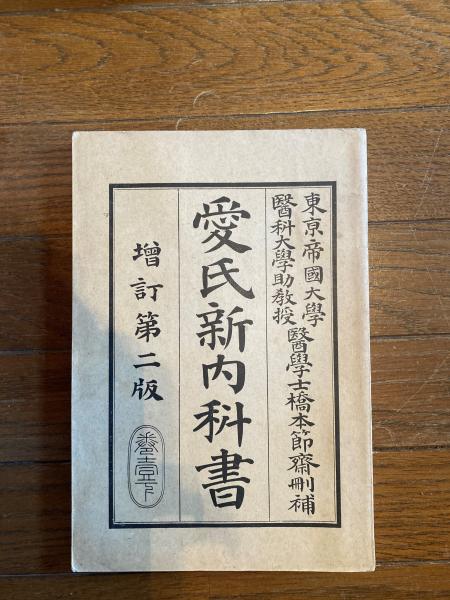 東京帝國大學
醫科大學助教授
醫學士橋本節齋刪補
愛氏新内科書
增訂第二版
卷壹下